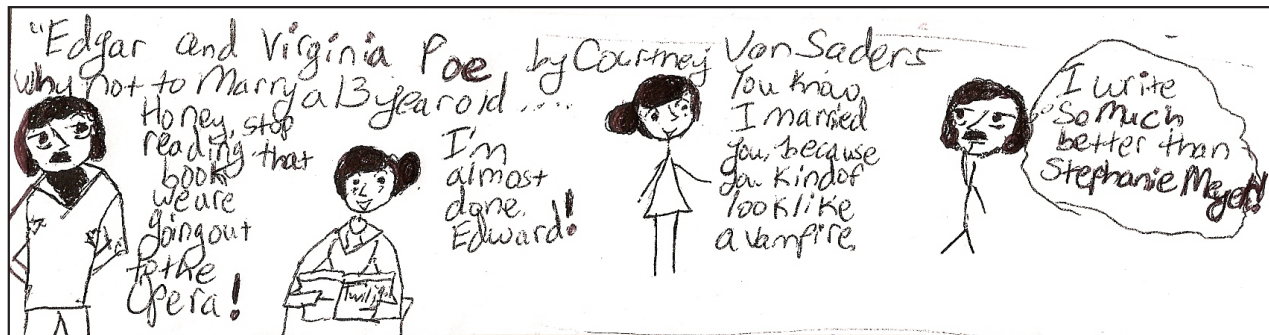 "Edgar and Virginia Poe by Courtney VanSaders
why not to Marry a 13 year old .....
Honey, stop
reading that
book
we are
going out
to the
Opera!
Twilight
I'm
almost
done.
Edward!
You know,
I married
you, because
you kind of
look like
a vampire.
I write
so much
better than
Stephanie Meyer!